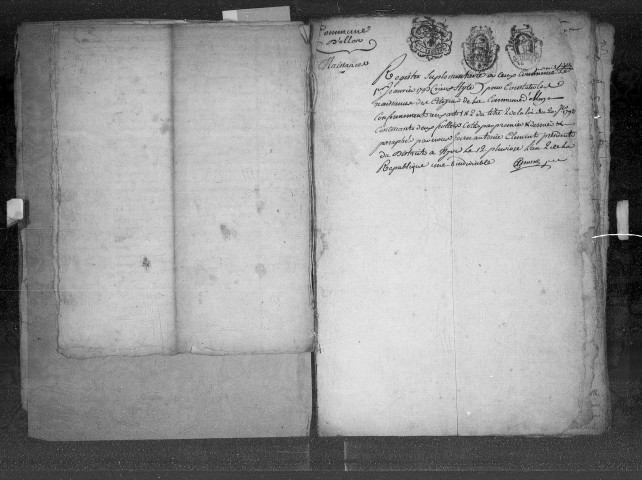 Commune
d'allon
Naissances
Registre Suplementaire a ceux Commencé le
1er Janvier 1793 (vieux Style) pour Constater les
naissances des Citoyens de la Commune
Conformement aux art. 1 & 2 du titre 2 de la loi du 20 7bre 1792
Contenants deux feuilles Cottés par premier & dernier &
paraphés par nous antoine Clement président
du District a le 12 pluviose L'an 2 de la
Republique une & indivisible